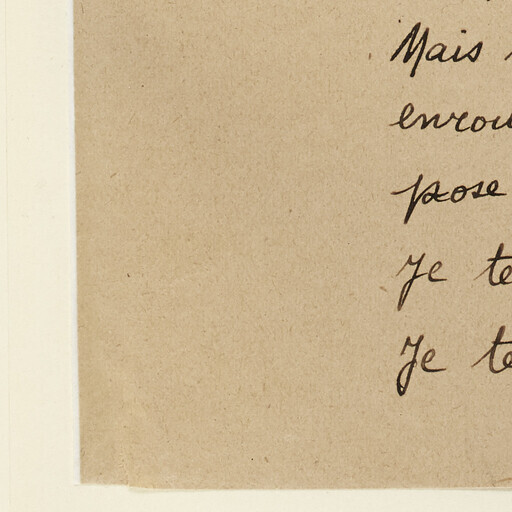 Mais
enrou
pose
Je te
Je te